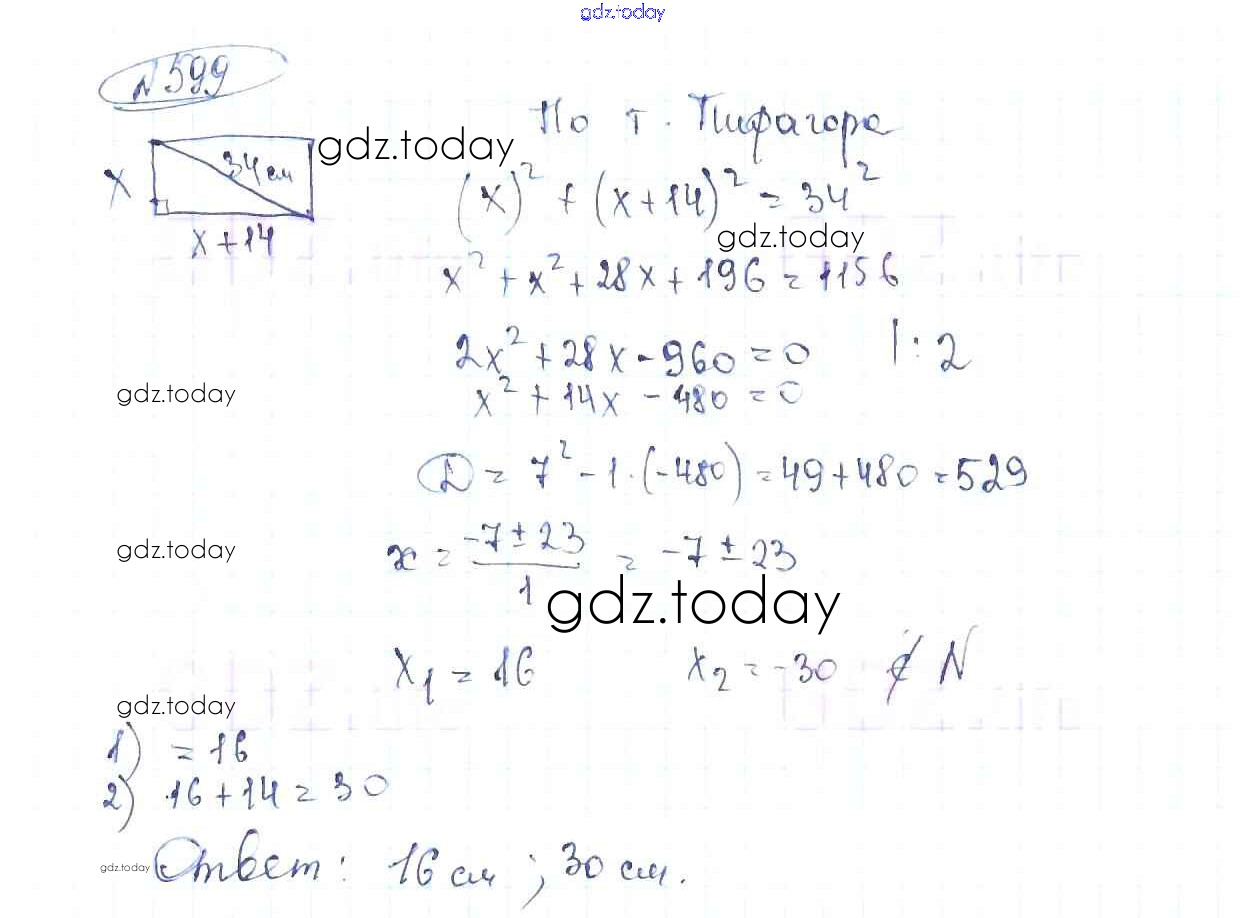 gdz.today
N 599
По т. Пифагора
gdz.today
34 см
x
(x)² + (x+14)² = 34²
x+14
gdz.today
x² + x² + 28x + 196 = 1156
2x² + 28x - 960 = 0 |: 2
gdz.today
x² + 14x - 480 = 0
D = 7² - 1·(-480) = 49 + 480 = 529
gdz.today
x = (-7 ± 23)/1 = -7 ± 23
gdz.today
x₁ = 16 x₂ = -30 ∉ N
gdz.today
1) = 16
2) 16 + 14 = 30
gdz.today
Ответ: 16 см ; 30 см.